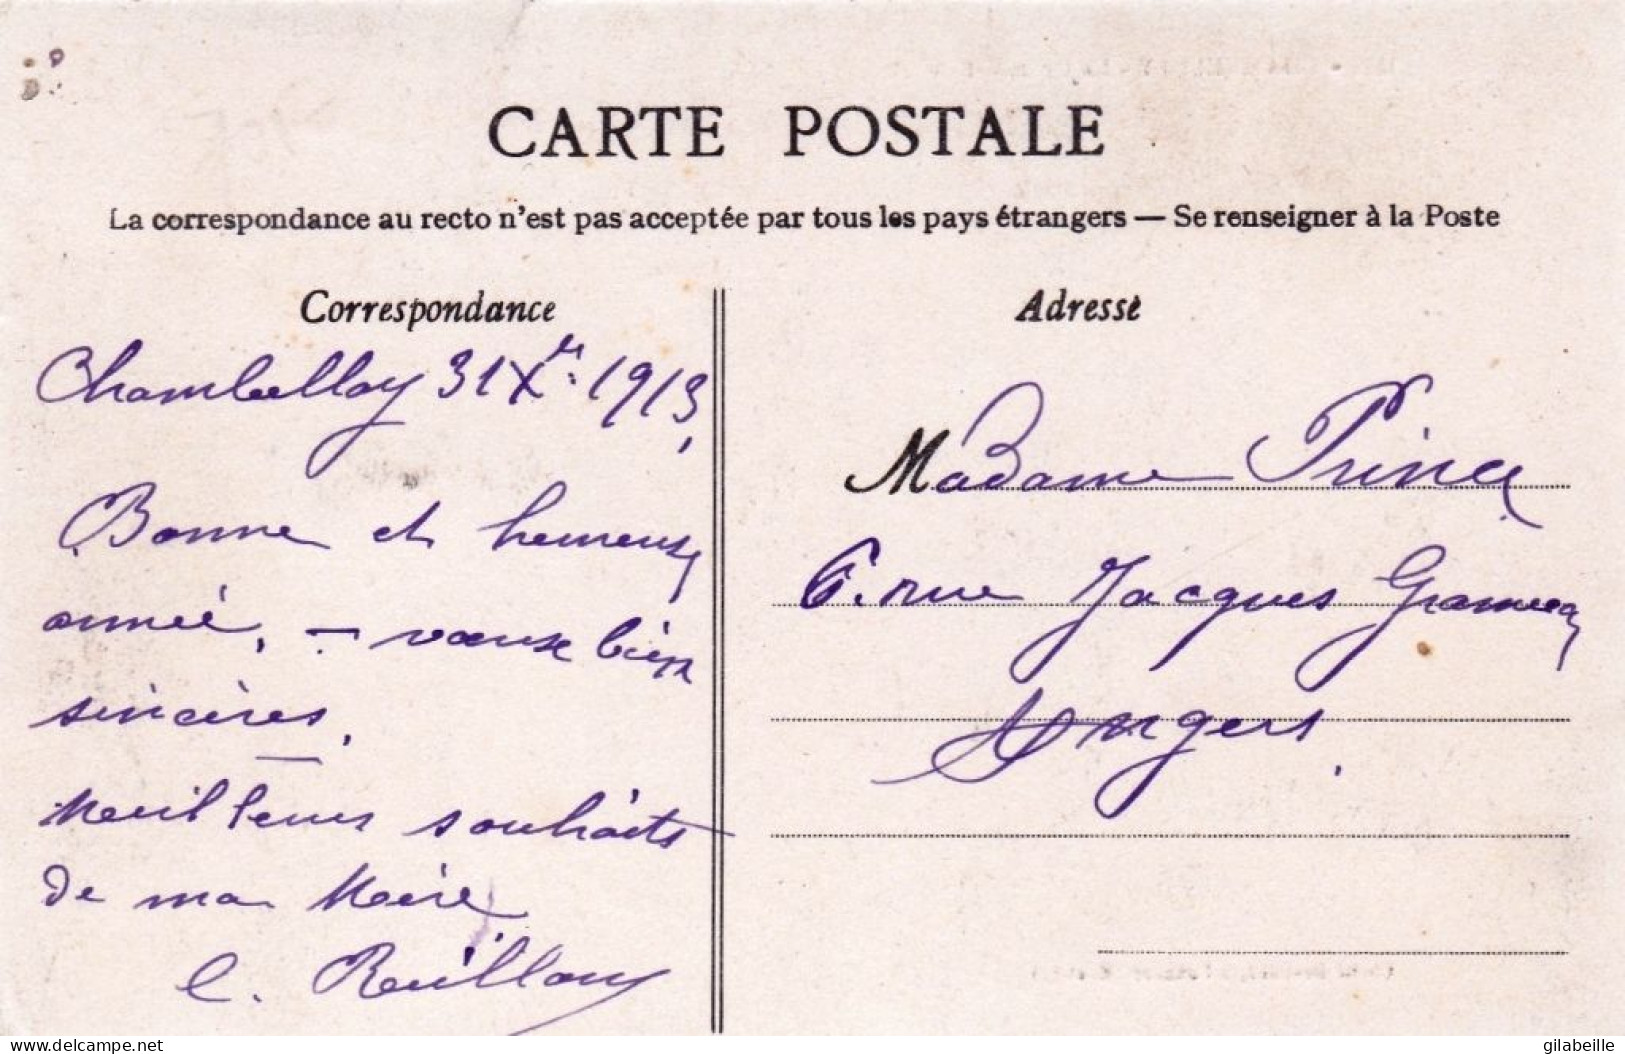 CARTE POSTALE
La correspondance au recto n'est pas acceptée par tous les pays étrangers — Se renseigner à la Poste
Correspondance
Chambellay 31 Xre. 1913,
Bonne et heureuse
année, - vœux bien
sincères.
Meilleurs souhaits
de ma Mère
C.
Adresse
Madame Prince
6. rue Jacques
Angers.
www.delcampe.net
gilabeille